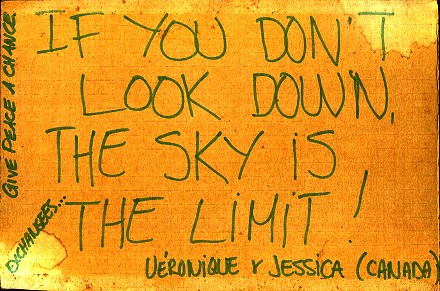 IF YOU DON'T
LOOK DOWN,
THE SKY iS
THE LiMiT!
VÉRONIQUE & JESSICA (CANADA)
GIVE PEACE A CHANCE